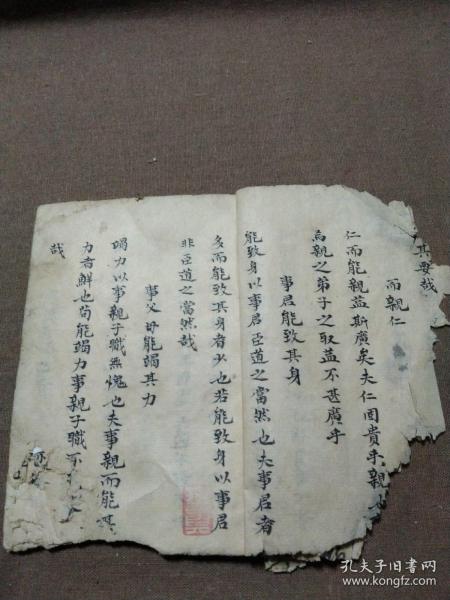 其要哉
而親仁
仁而能親益斯廣矣夫仁固貴乎親
焉親之弟子之取益不甚廣乎
事君能致其身
能致身以事君臣道之當然也夫事君者
多而能致其身者少也若能致身以事君
非臣道之當然哉
事父母能竭其力
竭力以事親子職無愧也夫事親而能其
力者鮮也苟能竭力事親子職不
哉
孔夫子旧书网
www.kongfz.com